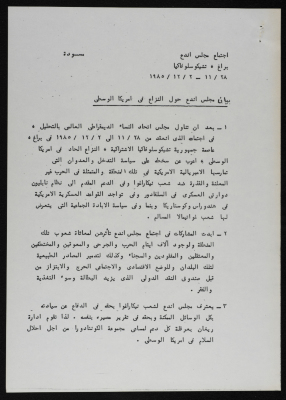 اجتماع مجلس اندع
مسودة
براغ – تشيكوسلوفاكيا
٢٨ / ١١ – ٢ / ١٢ / ١٩٨٥
بيان مجلس اندع حول النزاع في امريكا الوسطى
١ – بعد ان تناول مجلس اتحاد النساء الديمقراطي العالمي بالتحليل
في اجتماعه الذي انعقد من ٢٨ / ١١ الى ٢ / ١٢ / ١٩٨٥ في براغ
عاصمة جمهورية تشيكوسلوفاكيا الاشتراكية النزاع الحاد في امريكا
الوسطى اعرب عن سخطه على سياسة التدخل والعدوان التي
تمارسها الامبريالية الامريكية في تلك المنطقة والمتمثلة في الحرب غير
المعلنة والقذرة ضد شعب نيكاراغوا وفي الدعم المقدم الى نظام نابليون
دوارتي العسكري في السلفادور وفي قواعد القوات العسكرية الامريكية
في هندوراس وكوستاريكا وبنما وفي سياسة الابادة الجماعية التي يتعرض
لها شعب غواتيمالا المسالم .
٢ – ابدت المشاركات في اجتماع مجلس اندع تأثرهن لمعاناة شعوب تلك
المنطقة ولوجود آلاف ايتام الحرب والجرحى والمعوقين والمختطفين
والمعتقلين والمفقودين والسجناء وكذلك لتدمير المصادر الطبيعية
لتلك البلدان وللوضع الاقتصادي والاجتماعي الحرج والابتزاز من
قبل صندوق النقد الدولي الذي يزيد البطالة وسوء التغذية
والفقر .
٣ – يعترف مجلس اندع لشعب نيكاراغوا بحقه في الدفاع عن سيادته
بكل الوسائل الممكنة وبحقه في تقرير مصيره بنفسه . لذا تقوم ادارة
ريغان بعرقلة كل دعم لمساعي مجموعة الكونتادورا من اجل احلال
السلام في امريكا الوسطى .